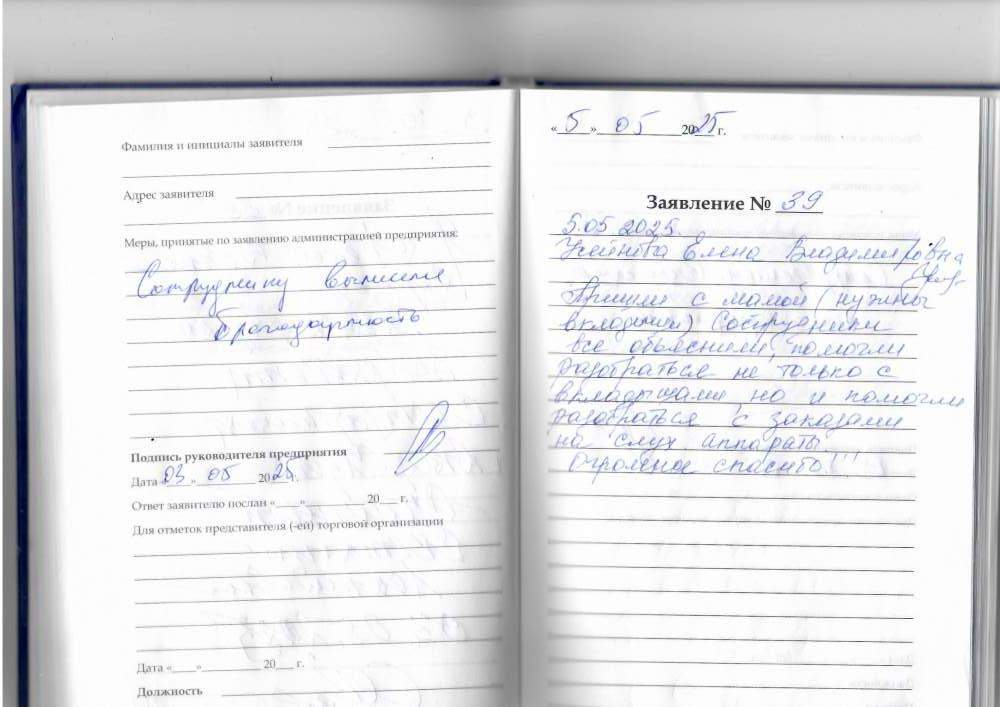 Фамилия и инициалы заявителя
Адрес заявителя
Меры, принятые по заявлению администрацией предприятия:
Сотруднику выписана
благодарность
Подпись руководителя предприятия
Дата «03» 05 2025 г.
Ответ заявителю послан «___»__________ 20___ г.
Для отметок представителя (-ей) торговой организации
Дата «___»__________ 20___ г.
Должность
«5» 05 2025 г.
Заявление № 39
5.05 2025.
Елена Владимировна
Пришли с мамой (нужны
вкладыши) Сотрудники
все объяснили, помогли
разобраться не только с
вкладышами но и помогли
разобраться с заказами
на слух аппараты.
Огромное спасибо!!!